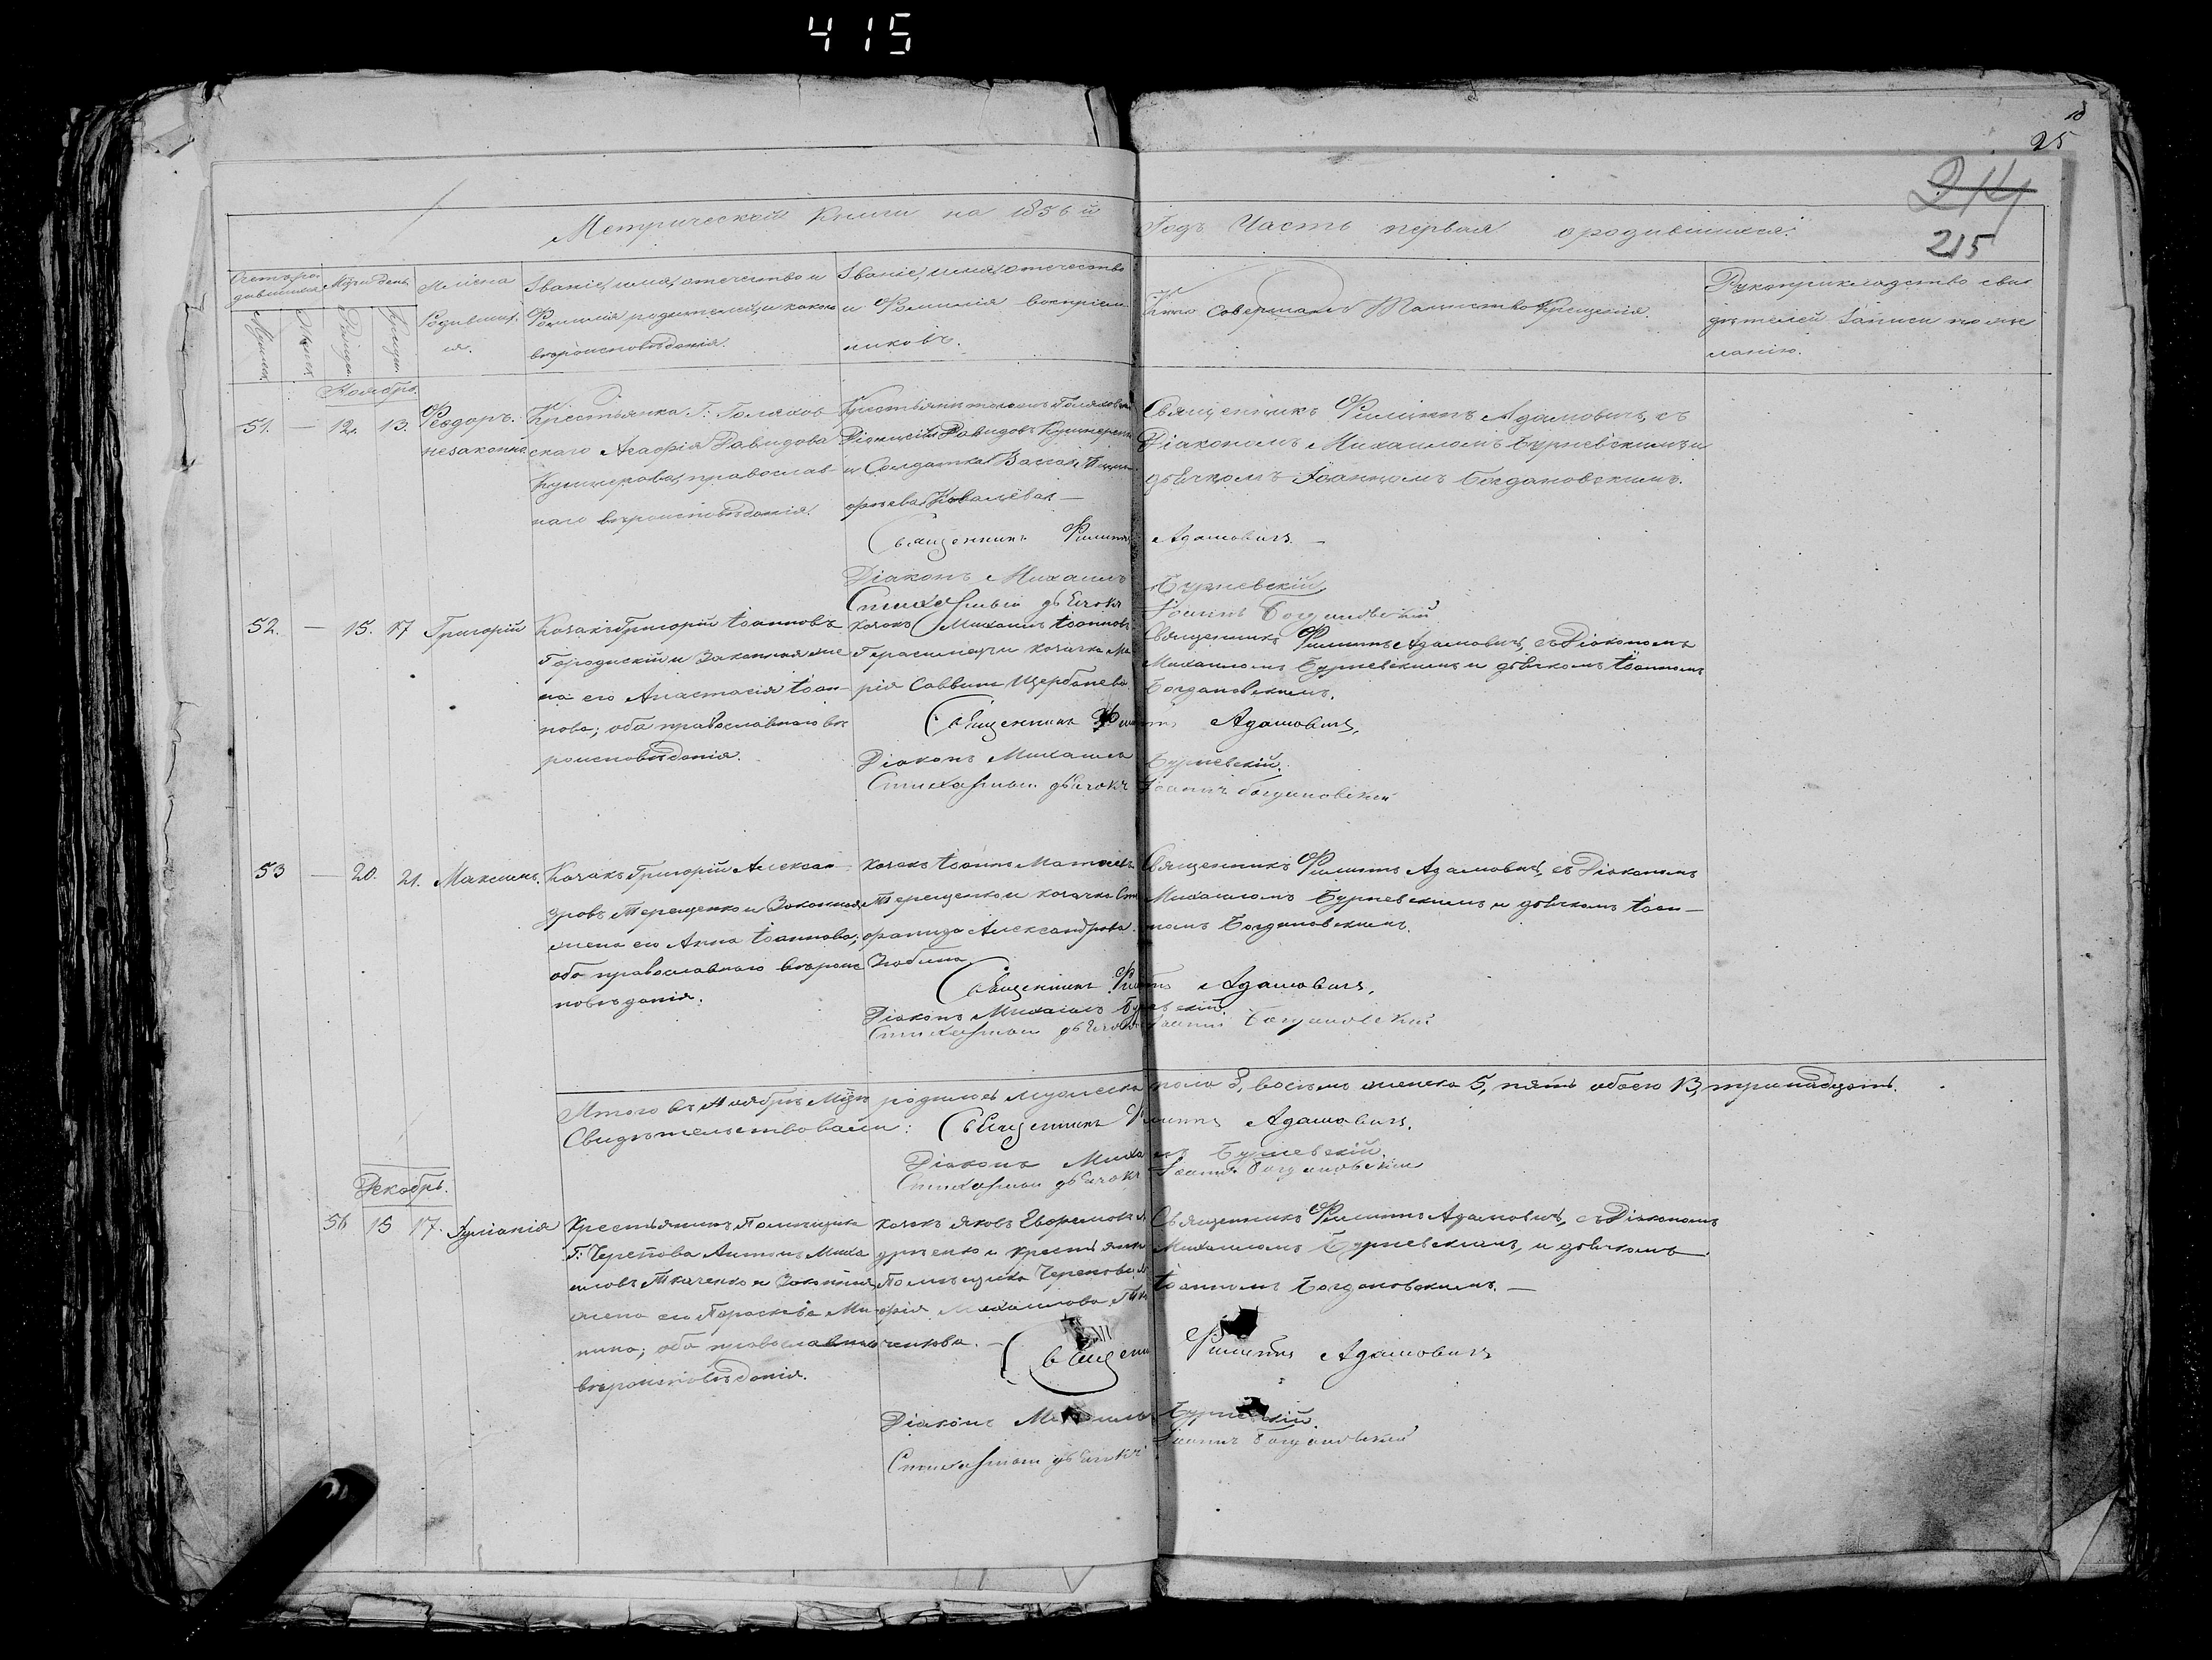 415
18
25
214
215
Метрической Книги на 1856й Годъ Часть первая о родившихся.
Счетъ родившихся
Мѣсяцъ и день
Имена Родившихся.
Званіе, имя, отечество и Фамилія родителей, и какого вѣроисповѣданія.
Званіе, имя, отечество и Фамилія воспріемниковъ.
Кто совершалъ Таинство Крещенія.
Рукоприкладство свидѣтелей записи по желанію.
Ноябрь.
51. — 12. 13. Ѳеодоръ.
незаконно
Крестьянка Г: Голяхов
скаго Агафія Давидова
православ
наго вѣроисповѣданія.
Діонисій Давидовъ
и Солдатка
Ковалёва —
Священникъ Филиппъ Адамовичъ, съ
Діакономъ Михаиломъ Бурневскимъ и
дьячкомъ Іоанномъ Богдановскимъ.
Священникъ Филиппъ Адамовичъ. —
Діаконъ Михаилъ Бурневскій
Стихарный дьячокъ Іоаннъ Богдановскій
52. — 15. 17 Григорій
Козакъ Григорій Іоанновъ
Городискій и законная же
на его Анастасія Іоан-
нова; оба православнаго вѣ
роисповѣданія.
Козакъ Михаилъ Іоанновъ
и козачка Ма
рія Саввина Щербанева.
Священникъ Филиппъ Адамовичъ, съ Діакономъ
Михаиломъ Бурневскимъ и дьячкомъ Іоанномъ
Богдановскимъ.
Священникъ Филиппъ Адамовичъ,
Діаконъ Михаилъ Бурневскій.
Стихарный дьячокъ Іоаннъ Богдановскій
53 — 20. 21. Максимъ.
Козакъ Григорій Александ
ровъ Терещенко и Законная
жена его Анна Іоаннова;
оба православнаго вѣроис
повѣданія.
Козакъ Іоаннъ Матѳеевъ
Терещенко и козачка Сте
фанида Александрова
Злобина
Священникъ Филиппъ Адамовичъ, съ Діакономъ
Михаиломъ Бурневскимъ и дьячкомъ Іоан—
номъ Богдановскимъ.
Священникъ Филиппъ Адамовичъ,
Діаконъ Михаилъ Бурневскій.
Стихарный дьячокъ Іоаннъ Богдановскій
Итого въ Ноябрѣ Мцѣ родилось мужеска пола 8, восемь женска 5, пять обоего 13, тринадцать.
Свидѣтельствовали: Священникъ Филиппъ Адамовичъ.
Діаконъ Михаилъ Бурневскій.
Стихарный дьячокъ Іоаннъ Богдановскій
Декабрь.
56 15 17. Іуліанія
Крестьянинъ Помѣщика
Г: Черепова Антонъ Миха
иловъ Ткаченко и Законная
жена его Параскева Ми
нина; оба православнаго
вѣроисповѣданія.
Козакъ Яковъ Евфремовъ
и крестьянка
Помѣщика Черепова
Михаилова Тка
ченкова. —
Священникъ Филиппъ Адамовичъ, съ Діакономъ
Михаиломъ Бурневскимъ, и дьячкомъ
Іоанномъ Богдановскимъ. —
Священникъ Филиппъ Адамовичъ
Діаконъ Михаилъ Бурневскій.
Стихарный дьячокъ Іоаннъ Богдановскій